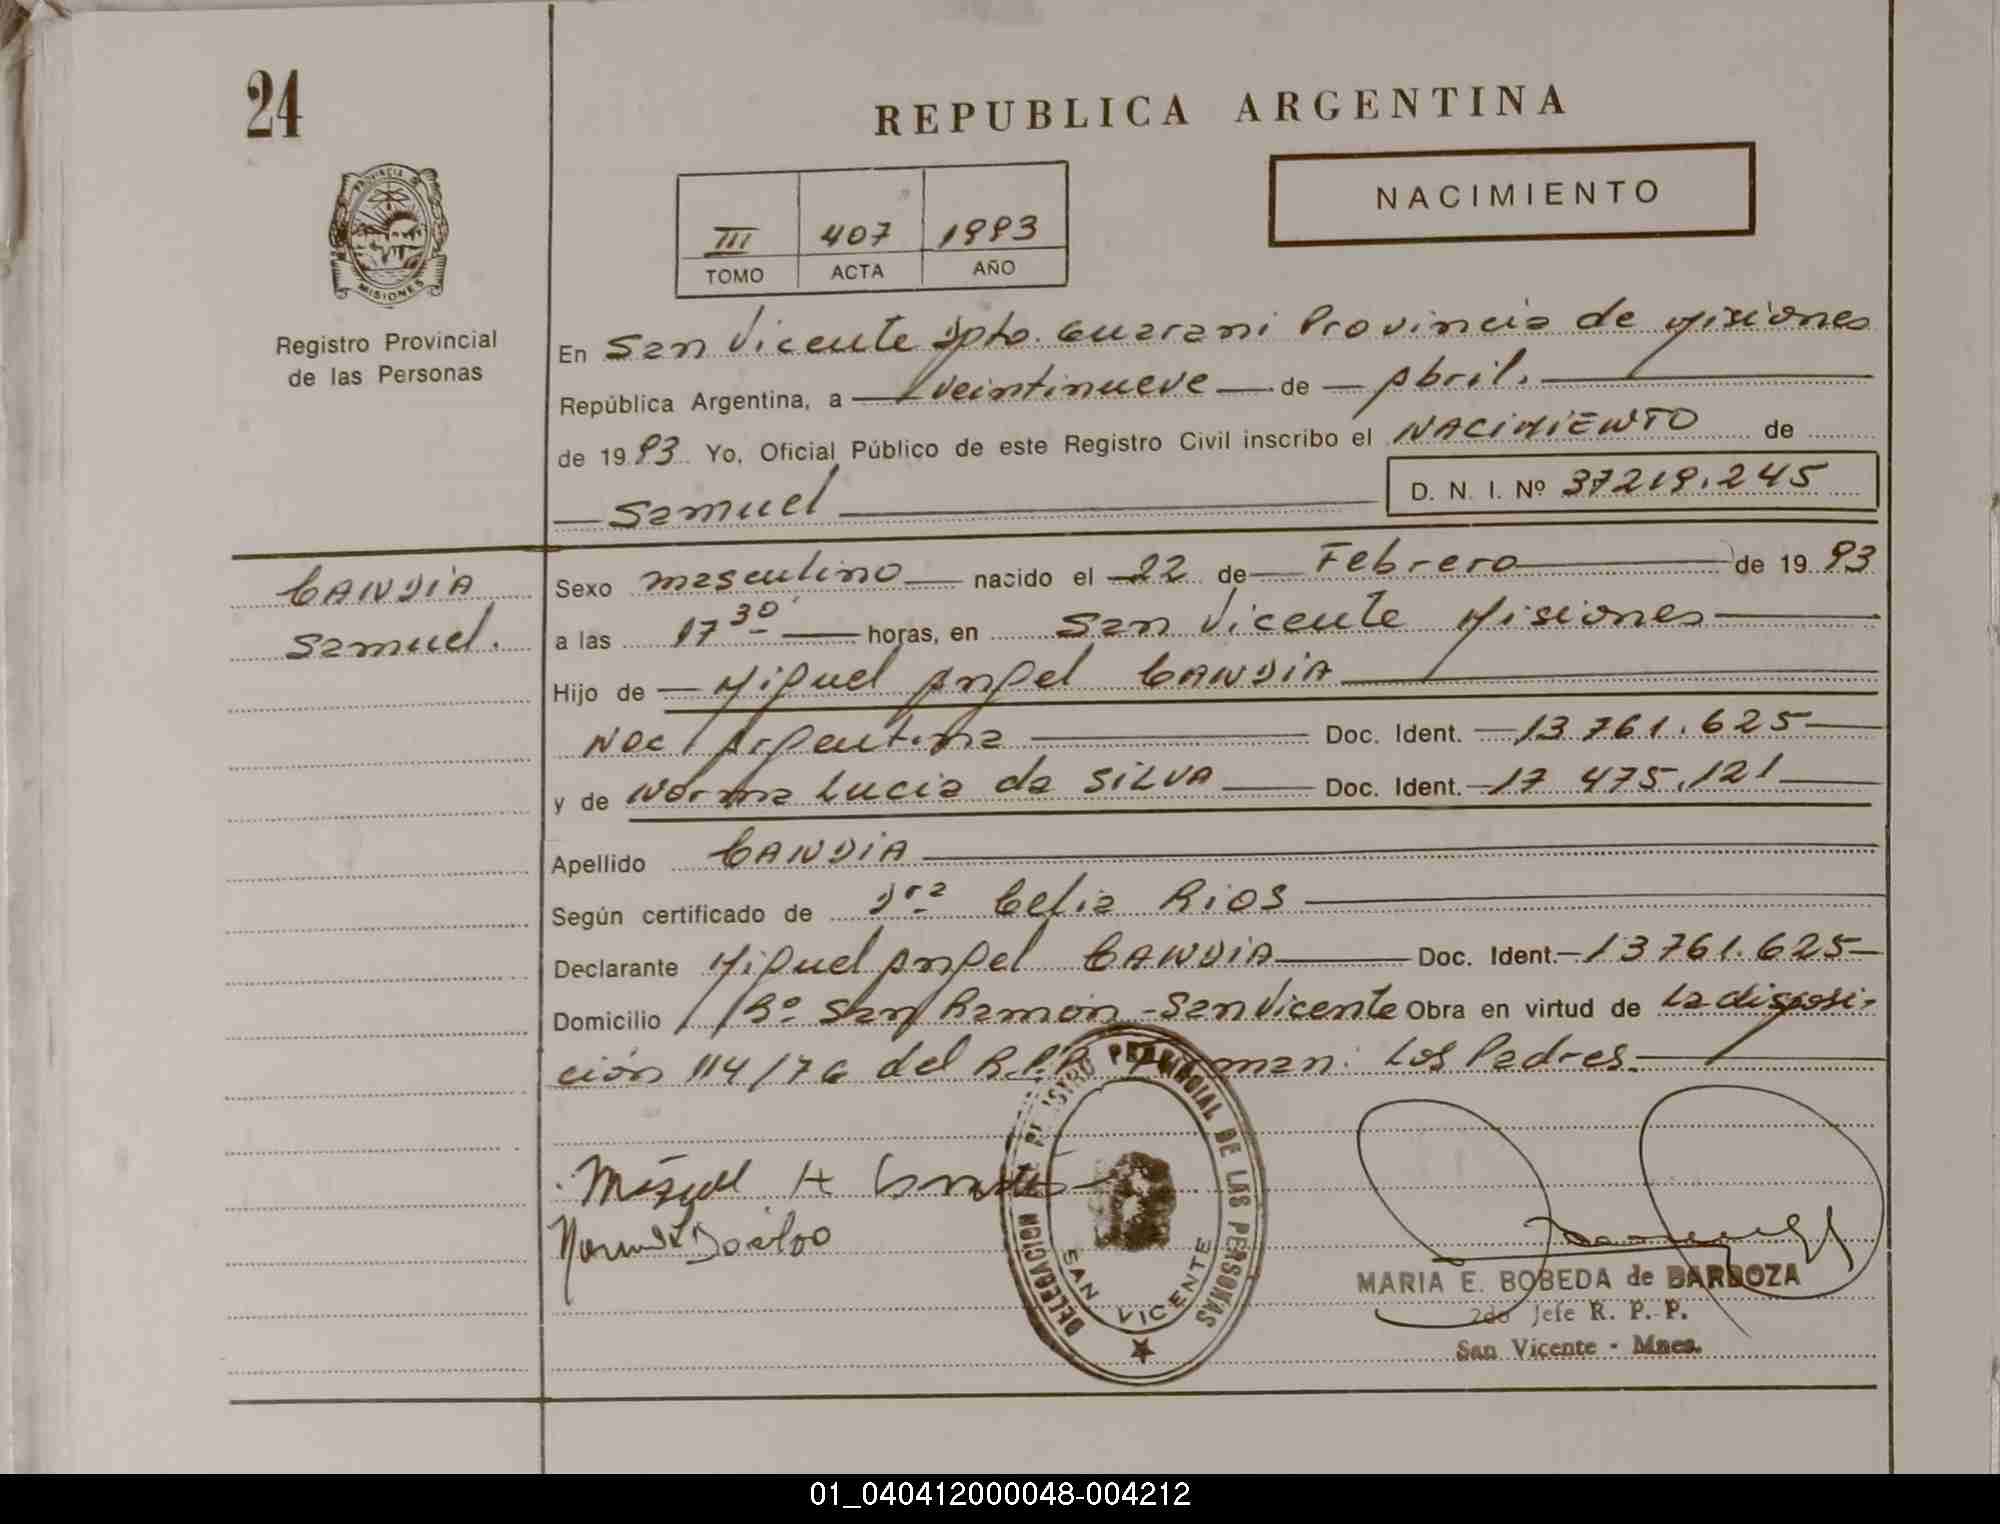 24
REPUBLICA ARGENTINA
NACIMIENTO
III 407 1993
TOMO ACTA AÑO
PROVINCIA DE
MISIONES
Registro Provincial
de las Personas
En San Vicente Dpto. Guarani Provincia de Misiones
República Argentina, a veintinueve de Abril.
de 1993 Yo, Oficial Público de este Registro Civil inscribo el NACIMIENTO de
Samuel D. N. I. Nº 37219.245
CANDIA
Samuel.
Sexo masculino nacido el 22 de Febrero de 1993
a las 17 30 horas, en San Vicente Misiones
Hijo de Miguel Angel CANDIA
Nac Argentina Doc. Ident. 13 761.625
y de Norma Lucia da SILVA Doc. Ident. 17 475.121
Apellido CANDIA
Según certificado de Dra Celia Rios
Declarante Miguel Angel CANDIA Doc. Ident. 13761.625
Domicilio Bº San Ramon - San Vicente Obra en virtud de La disposi-
ción 114/76 del R.P.P. man: Los Padres.
Miguel A
DELEGACION REGISTRO PROVINCIAL DE LAS PERSONAS
SAN VICENTE
MARIA E. BOBEDA de BARBOZA
2do Jefe R. P. P.
San Vicente - Mnes.
01_040412000048-004212